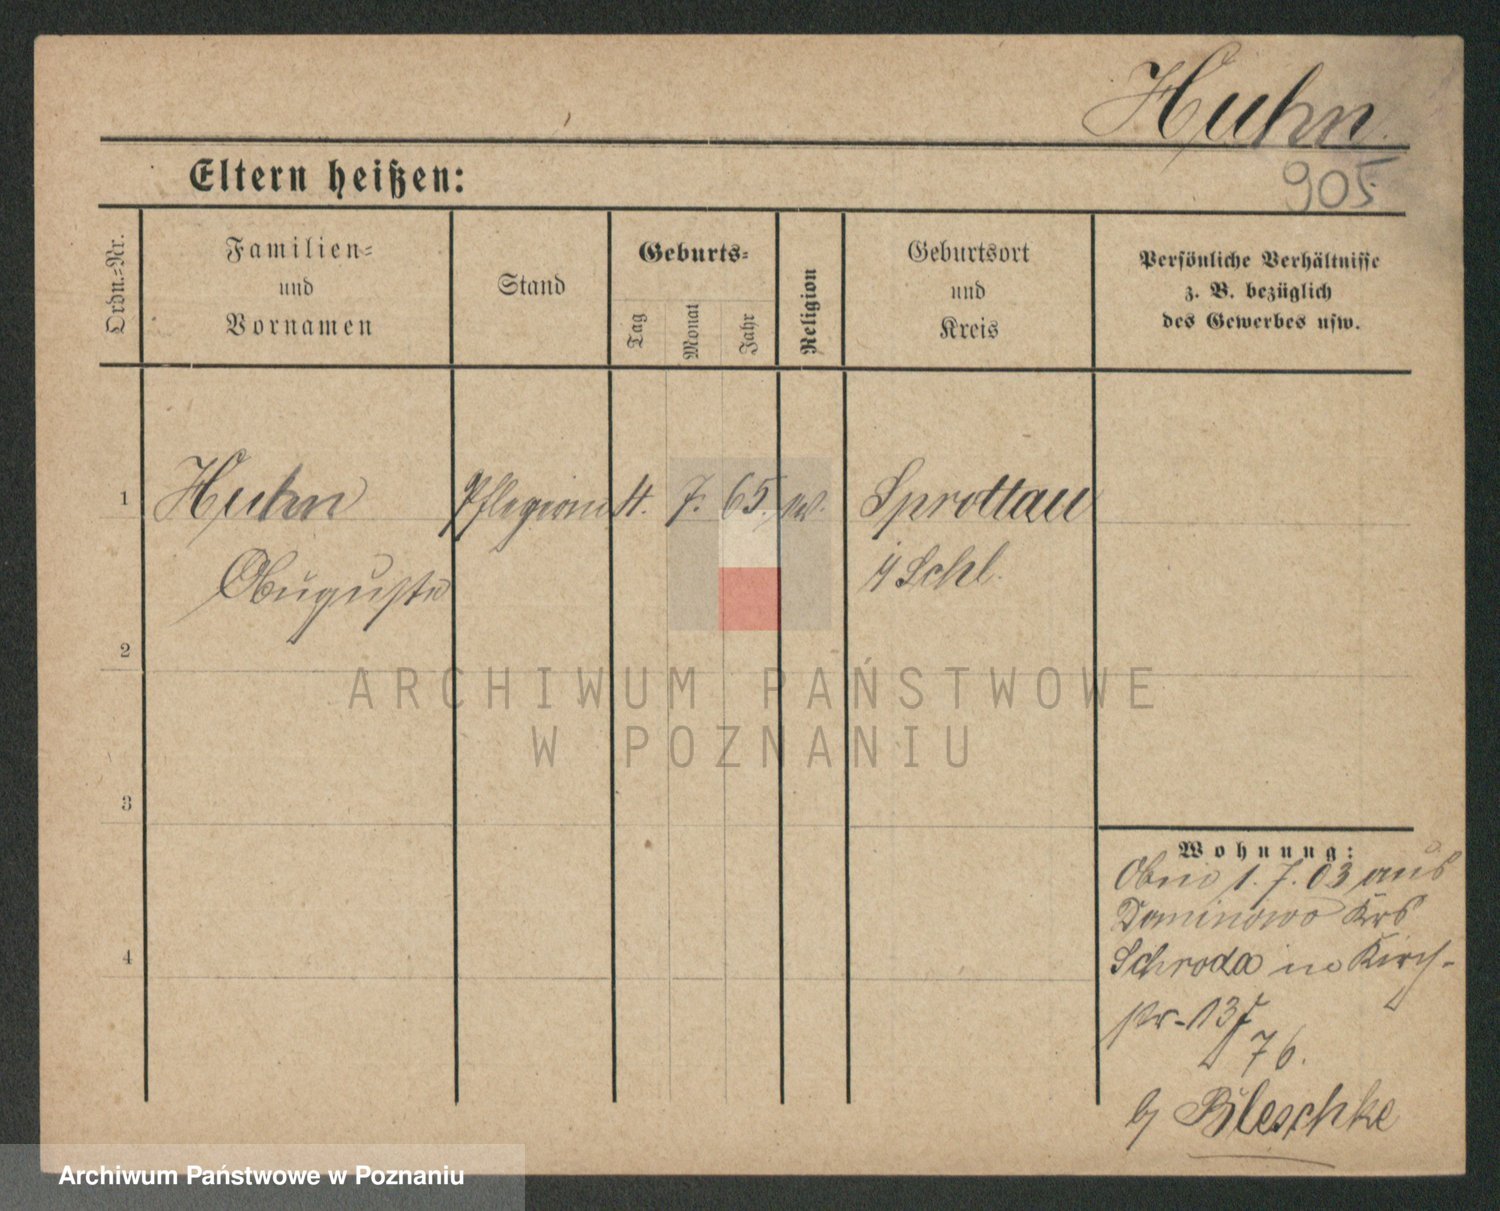 Huhn
905
Eltern heißen:
Ordn.=Nr.
Familien=
und
Vornamen
Stand
Geburts=
Tag
Monat
Jahr
Religion
Geburtsort
und
Kreis
Persönliche Verhältnisse
z. B. bezüglich
des Gewerbes usw.
1 Huhn 4. 7. 65. Sprottau
Auguste i/Schl.
2
3
4
Wohnung:
1. 7. 03 aus
Dominowo Krs
Schroda in Kirch-
pr-
76.
b/ Bleschke
ARCHIWUM PAŃSTWOWE
W POZNANIU
Archiwum Państwowe w Poznaniu